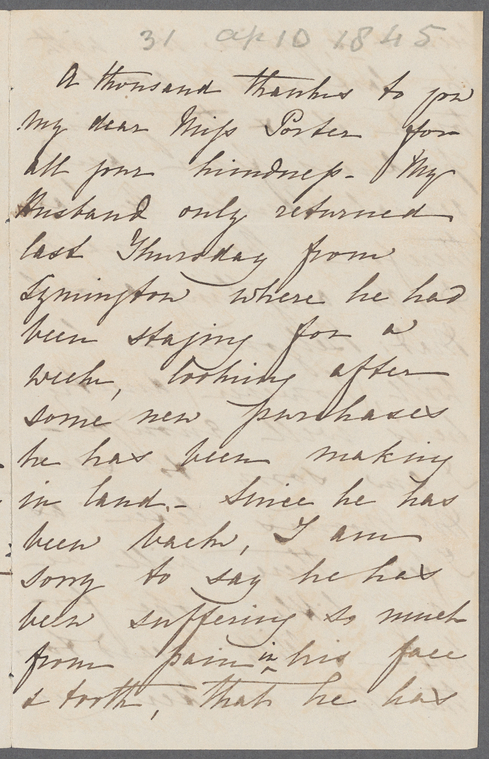 31 ap 10 1845
A thousand thanks to you
my dear Miss Porter for
all your kindness - My
Husband only returned
last Thursday from
Lymington where he had
been staying for a
week, looking after
some new purchases
he has been making
in land - Since he has
been back, I am
sorry to say he has
been suffering so much
from pain in his face
& tooth, that he has